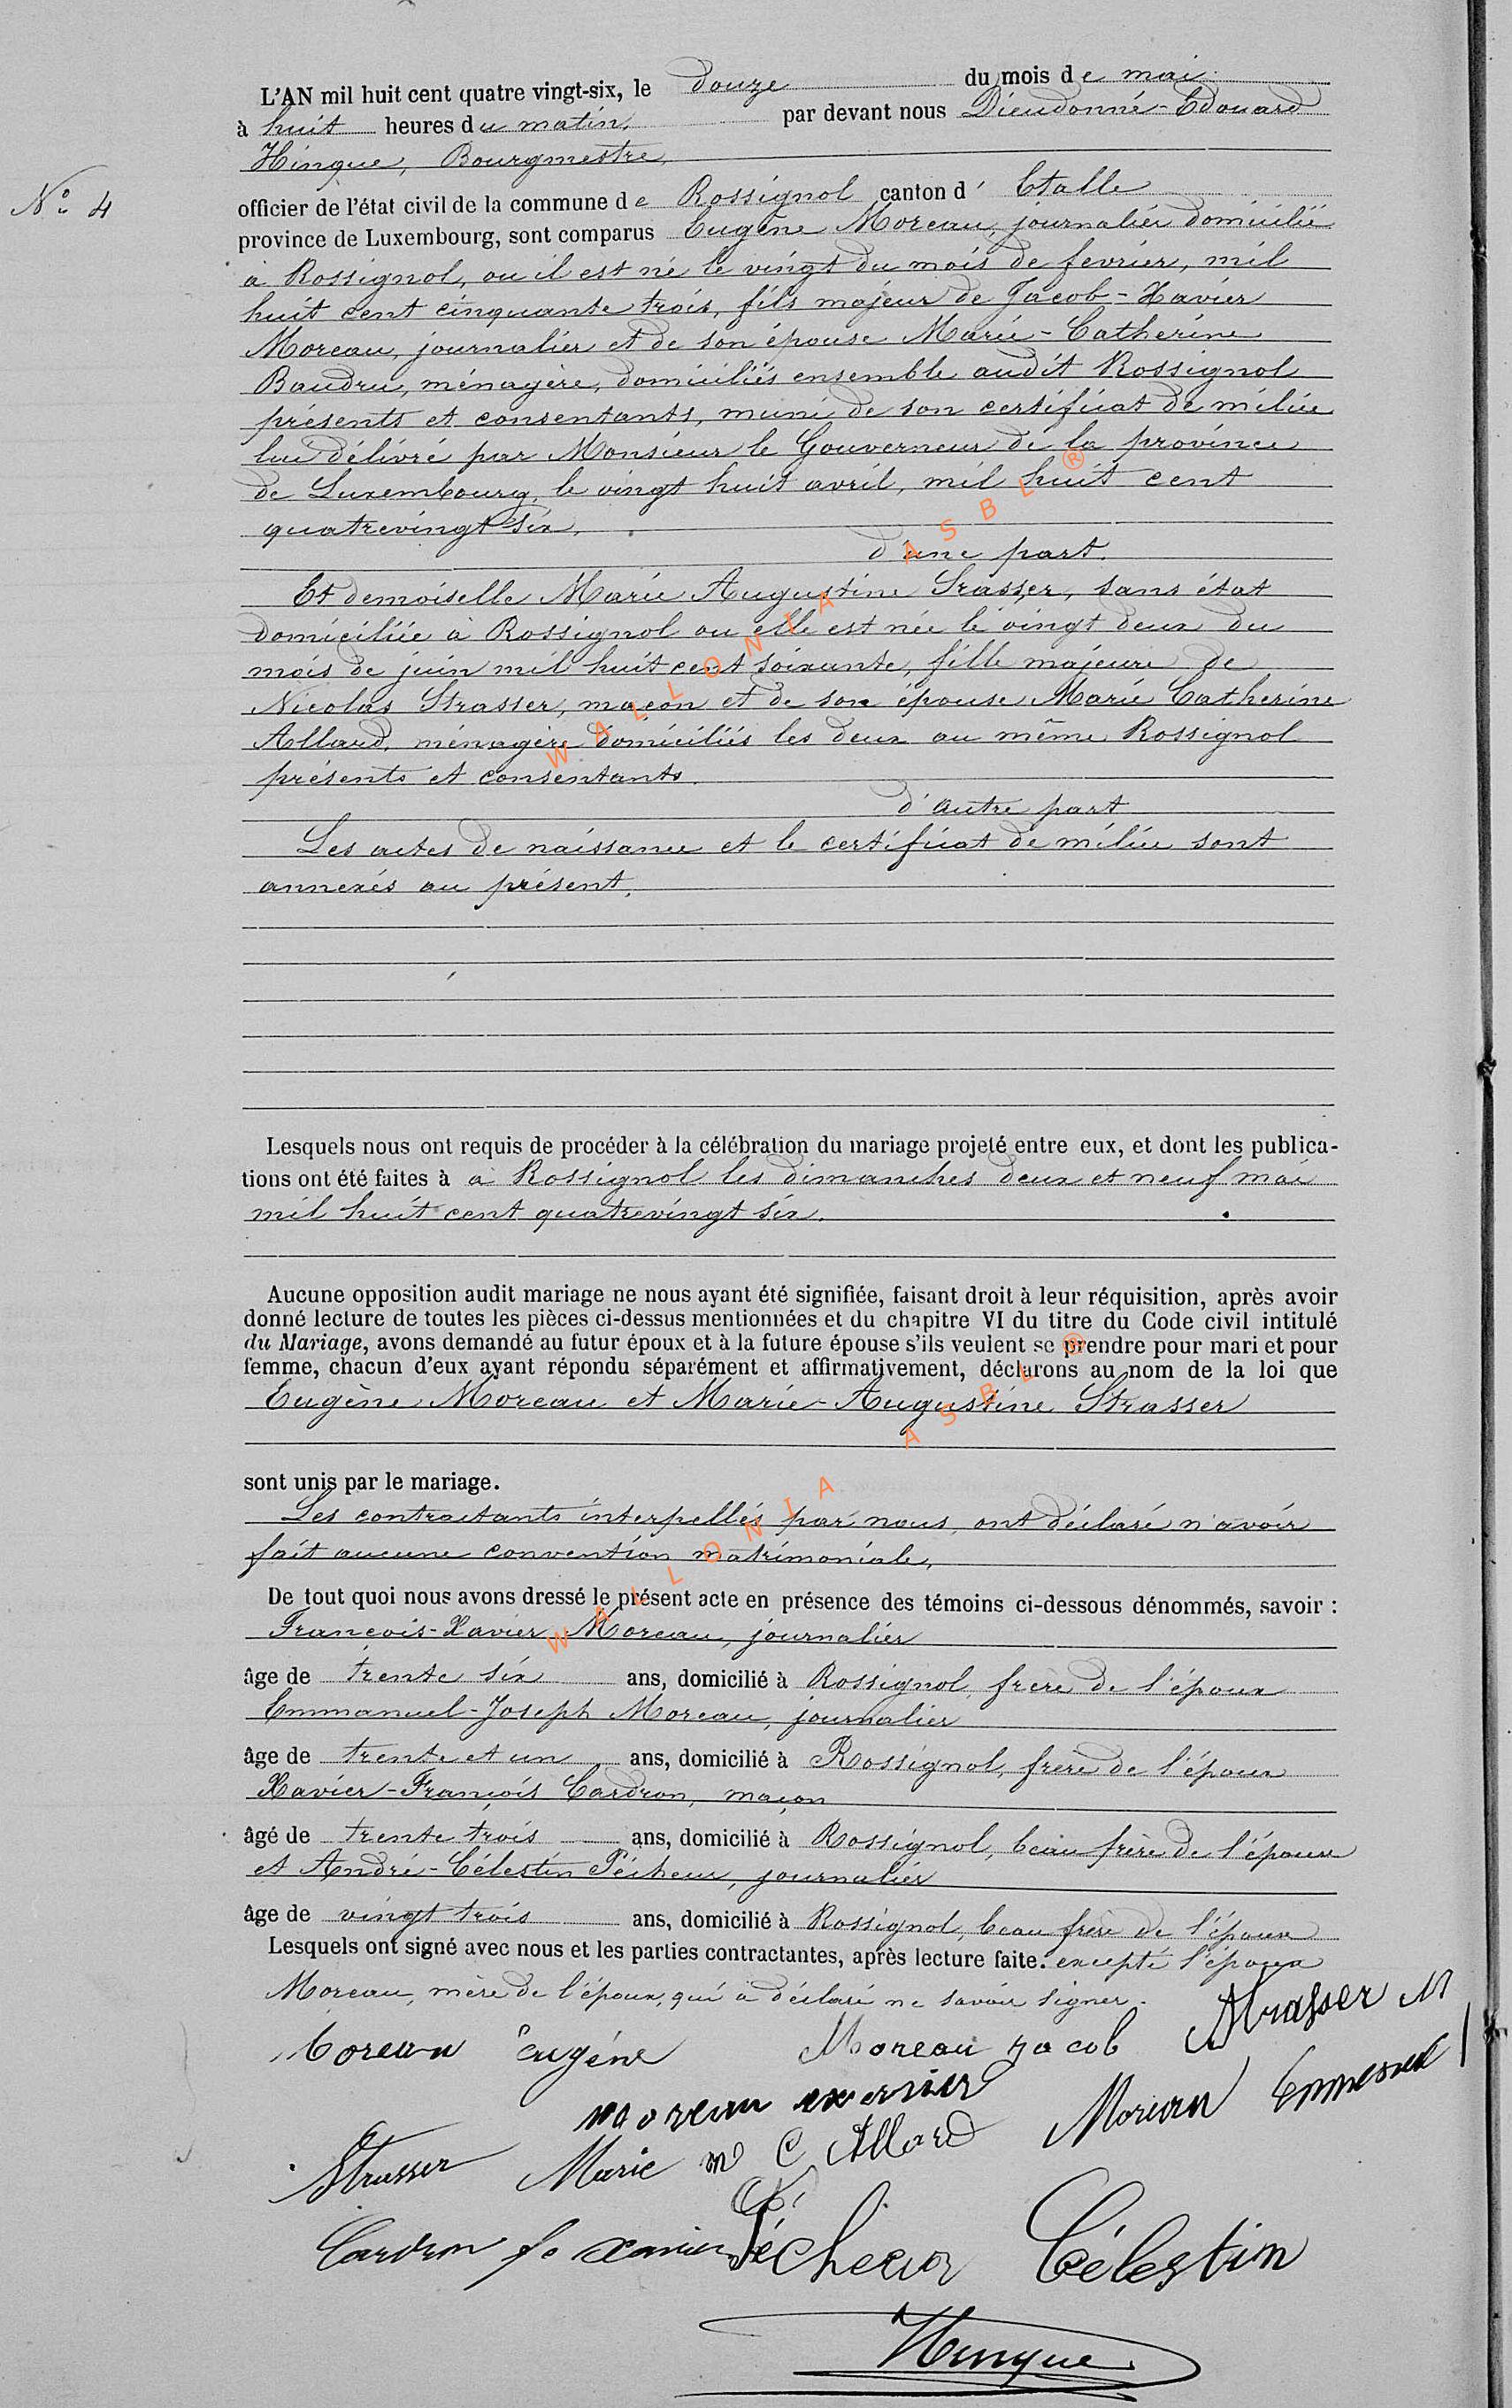 L'AN mil huit cent quatre vingt-six, le douze du mois de mai
à huit heures du matin. par devant nous Dieudonné-Edouard
Hinque, Bourgmestre,
N° 4
officier de l'état civil de la commune de Rossignol canton d' Etalle
province de Luxembourg, sont comparus Eugène Moreau, journalier domicilié
à Rossignol, ou il est né le vingt du mois de fevrier, mil
huit cent cinquante trois, fils majeur de Jacob-Xavier
Moreau, journalier et de son épouse Marie-Catherine
Baudru, ménagère, domiciliés ensemble audit Rossignol
présents et consentants, muni de son certificat de milice
lui délivré par Monsieur le Gouverneur de la province
de Luxembourg, le vingt huit avril, mil huit cent
quatrevingt six.
d'une part.
Et demoiselle Marie Augustine Srasser, sans état
domiciliée à Rossignol ou elle est née le vingt deux du
mois de juin mil huit cent soixante, fille majeure de
Nicolas Strasser, maçon et de son épouse Marie Catherine
Allard, ménagère domiciliés les deux au même Rossignol
présents et consentants.
d'autre part
Les actes de naissance et le certificat de milice sont
annexés au présent.
Lesquels nous ont requis de procéder à la célébration du mariage projeté entre eux, et dont les publica-
tions ont été faites à à Rossignol les dimanches deux et neuf mai
mil huit cent quatrevingt six.
Aucune opposition audit mariage ne nous ayant été signifiée, faisant droit à leur réquisition, après avoir
donné lecture de toutes les pièces ci-dessus mentionnées et du chapitre VI du titre du Code civil intitulé
du Mariage, avons demandé au futur époux et à la future épouse s'ils veulent se prendre pour mari et pour
femme, chacun d'eux ayant répondu séparément et affirmativement, déclarons au nom de la loi que
Eugène Moreau et Marie-Augustine Strasser
sont unis par le mariage.
Les contractants interpellés par nous, ont déclaré n'avoir
fait aucune convention matrimoniale,
De tout quoi nous avons dressé le présent acte en présence des témoins ci-dessous dénommés, savoir :
François-Xavier Moreau, journalier
âge de trente six ans, domicilié à Rossignol, frère de l'époux
Emmanuel-Joseph Moreau, journalier
âge de trente et un ans, domicilié à Rossignol, frère de l'époux
Xavier-François Cardron, maçon
âgé de trente trois ans, domicilié à Rossignol, beau frère de l'épouse
et André-Célestin Pécheur, journalier
âge de vingt trois ans, domicilié à Rossignol, beau frère de l'époux
Lesquels ont signé avec nous et les parties contractantes, après lecture faite. excepté l'épouse
Moreau, mère de l'époux, qui a déclaré ne savoir signer.
Moreau Eugéne Moreau Jacob Strasser M
moreau Moreau
Strasser Marie m C Allard
Cardron Xavier Pécheur Célestin
Hinque
WALLONIA ASBL ®
WALLONIA ASBL ®